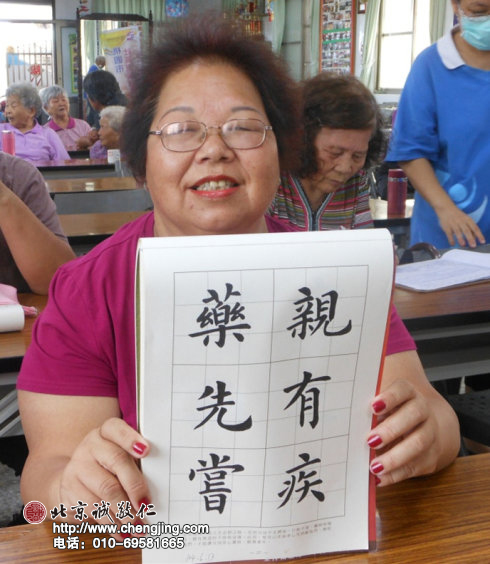 親有疾
藥先嘗
北京誠敬仁
http://www.chengjing.com
电话：010-69581665